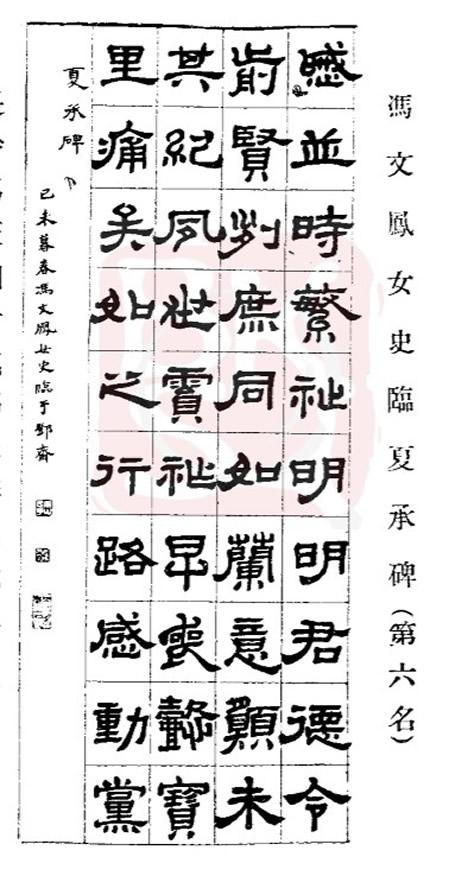 馮文鳳女史臨夏承碑（第六名）
慼並時繁祉明明君德令
前賢列庶同如蘭意願未
其紀夙世霣祚早喪懿寶
里痛矣如之行路感動黨
夏承碑
己未暮春馮文鳳女史臨于齋